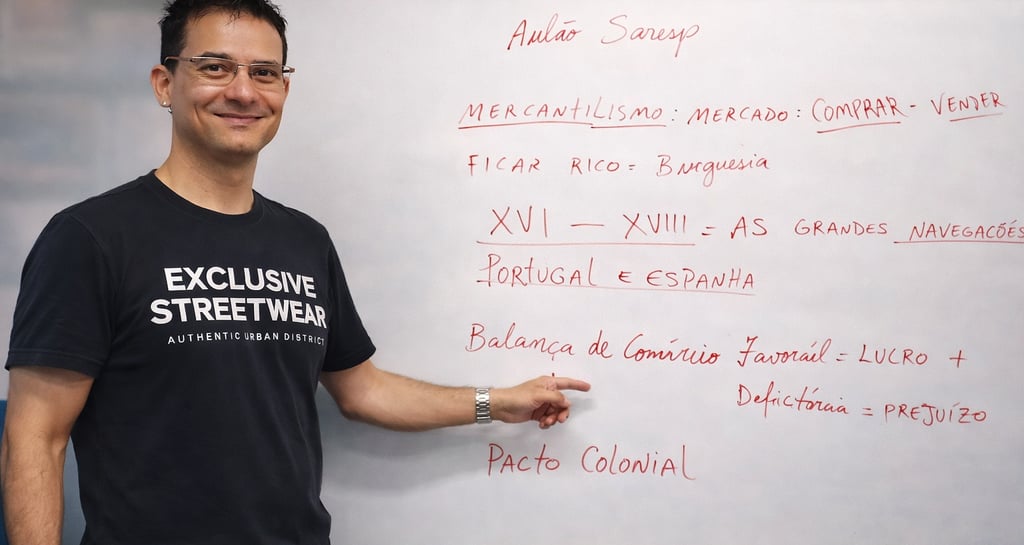 EXCLUSIVE
STREETWEAR
AUTHENTIC URBAN DISTRICT
Aulão Saresp
MERCANTILISMO: MERCADO: COMPRAR - VENDER
FICAR RICO = Burguesia
XVI — XVIII = AS GRANDES NAVEGAÇÕES
PORTUGAL E ESPANHA
Balança de Comércio Favoraíl = LUCRO +
Defictórcia = PREJUÍZO
PACTO COLONIAL